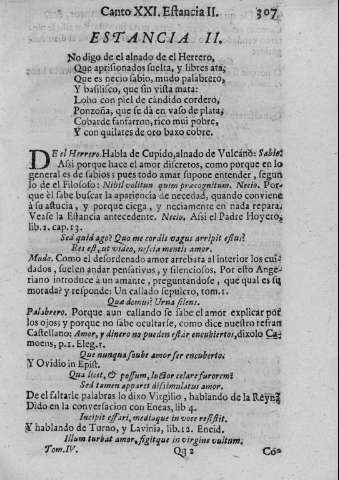 Canto XXI. Estancia II. 307
ESTANCIA II.
No digo de el alnado de el Herrero,
Que aprisionados suelta, y libres ata;
Que es necio sabio, mudo palabrero,
Y basilisco, que sin vista mata:
Lobo con piel de candido cordero,
Ponzoña, que se dà en vaso de plata,
Cobarde fanfarron, rico mui pobre,
Y con quilates de oro baxo cobre.
DE el Herrero. Habla de Cupido, alnado de Vulcano: Sabio.
Assi porque hace el amor discretos, como porque en lo
general es de sabios; pues todo amar supone entender, segun
lo de el Filosofo: Nihil volitum quim præcognitum. Necio. Por-
que èl sabe buscar la apariencia de necedad, quando conviene
à su astucia, y porque ciega, y neciamente en nada repara.
Vease la Estancia antecedente. Necio. Assi el Padre Hoyero,
lib. 2. cap. 13.
Sed quid ago? Quo me cordis vagus arripit æstus?
Res est, ut video, nescia mentis amor.
Mudo. Como el desordenado amor arrebata al interior los cui-
dados, suelen andar pensativos, y silenciosos. Por esto Ange-
riano introduce à un amante, preguntandose, què qual es su
morada? y responde: Un callado sepulcro, tom. 1.
Quæ domus? Urna silens.
Palabrero. Porque aun callando se sabe el amor explicar por
los ojos; y porque no sabe ocultarse, como dice nuestro refran
Castellano: Amor, y dinero no pueden estàr encubiertos, dixolo Ca-
moens, p. 1. Eleg. 1.
Que nunqua soube amor ser encuberto.
Y Ovidio in Epist.
Qua licet, & possum, luctor celare furorem:
Sed tamen apparet dissimulatus amor.
De el faltarle palabras lo dixo Virgilio, hablando de la Reyna
Dido en la conversacion con Eneas, lib. 4.
Incipit effari, mediaque in voce resistit.
Y hablando de Turno, y Lavinia, lib. 12. Eneid.
Illum turbat amor, figitque in virgine vultum.
Tom. IV. Qq 2 Co-